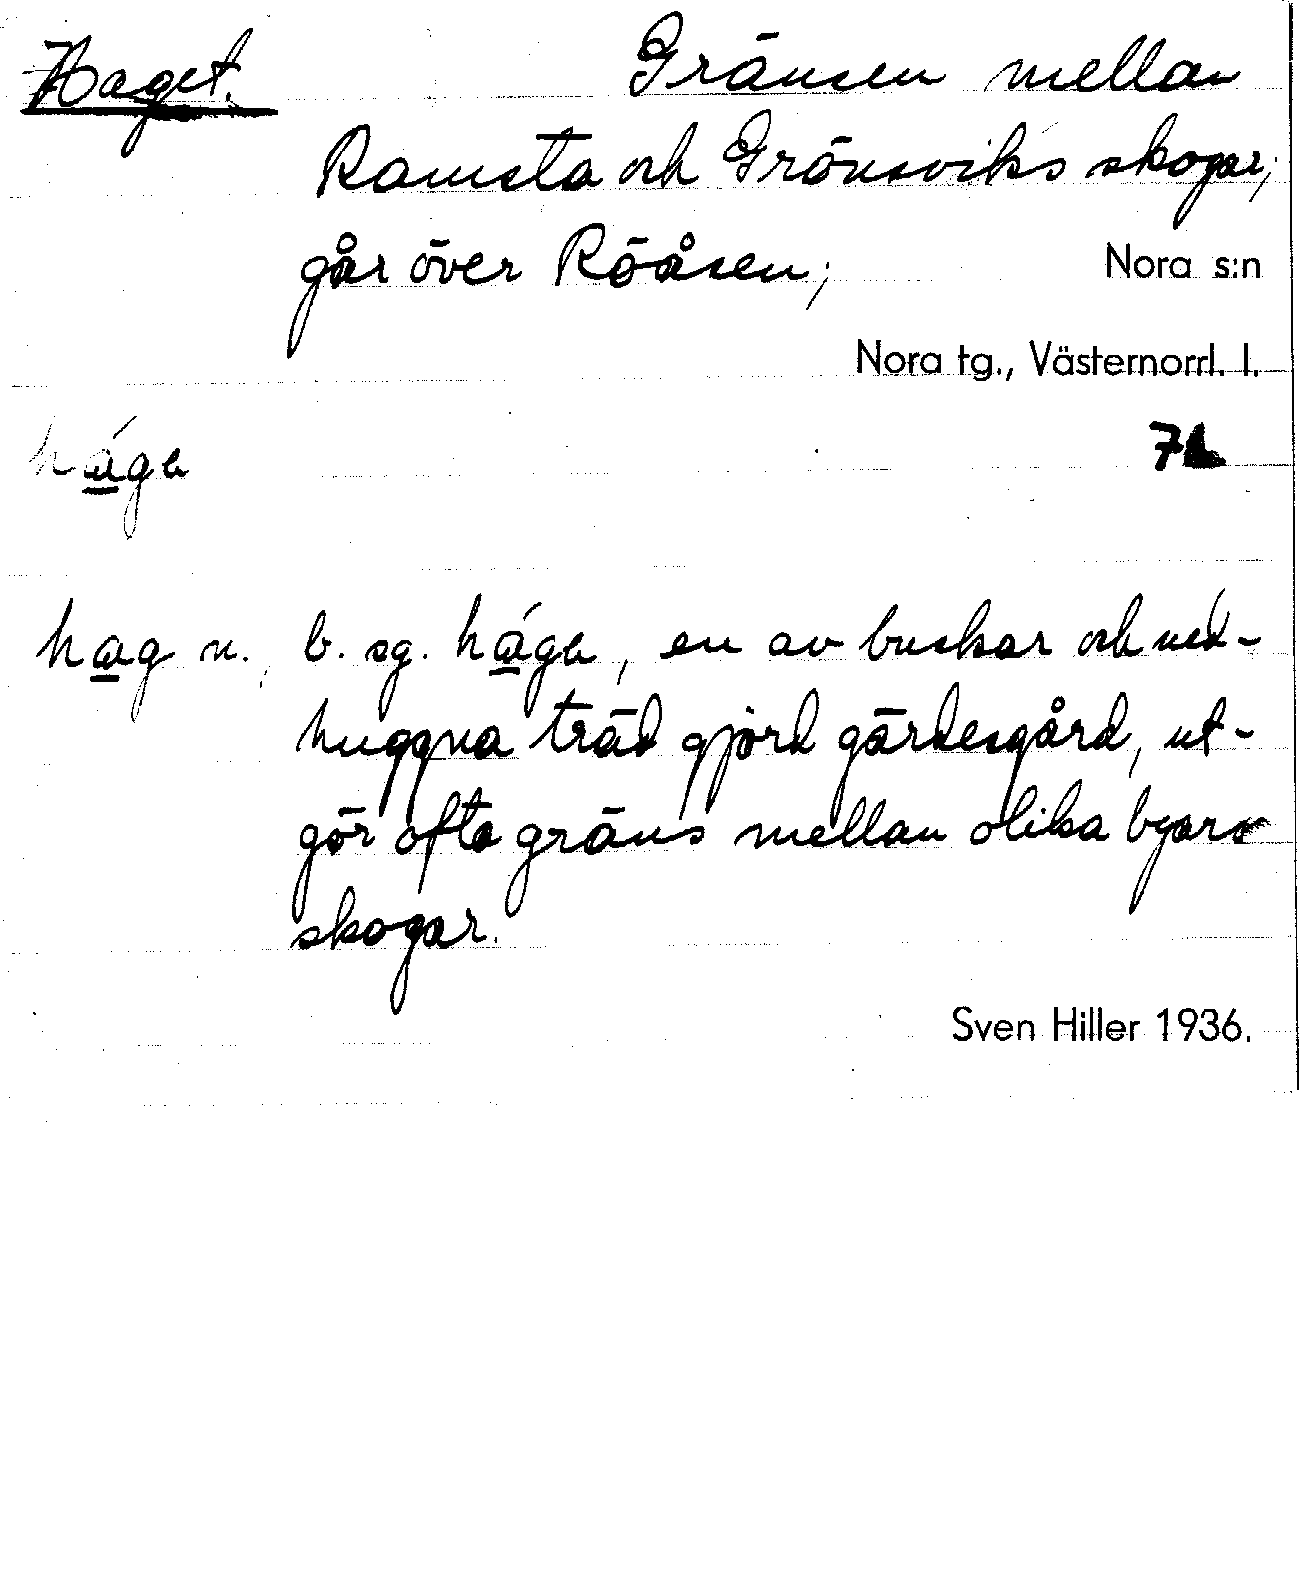 Haget. Gränsen mellan
Ramsta och Grönsviks skogar;
går över Röåsen; Nora s:n
Nora tg., Västernorrl. l.
hag n., b. sg. , en av buskar och ned-
huggna träd gjord gärdesgård, ut-
gör ofta gräns mellan olika byars
skogar.
Sven Hiller 1936.